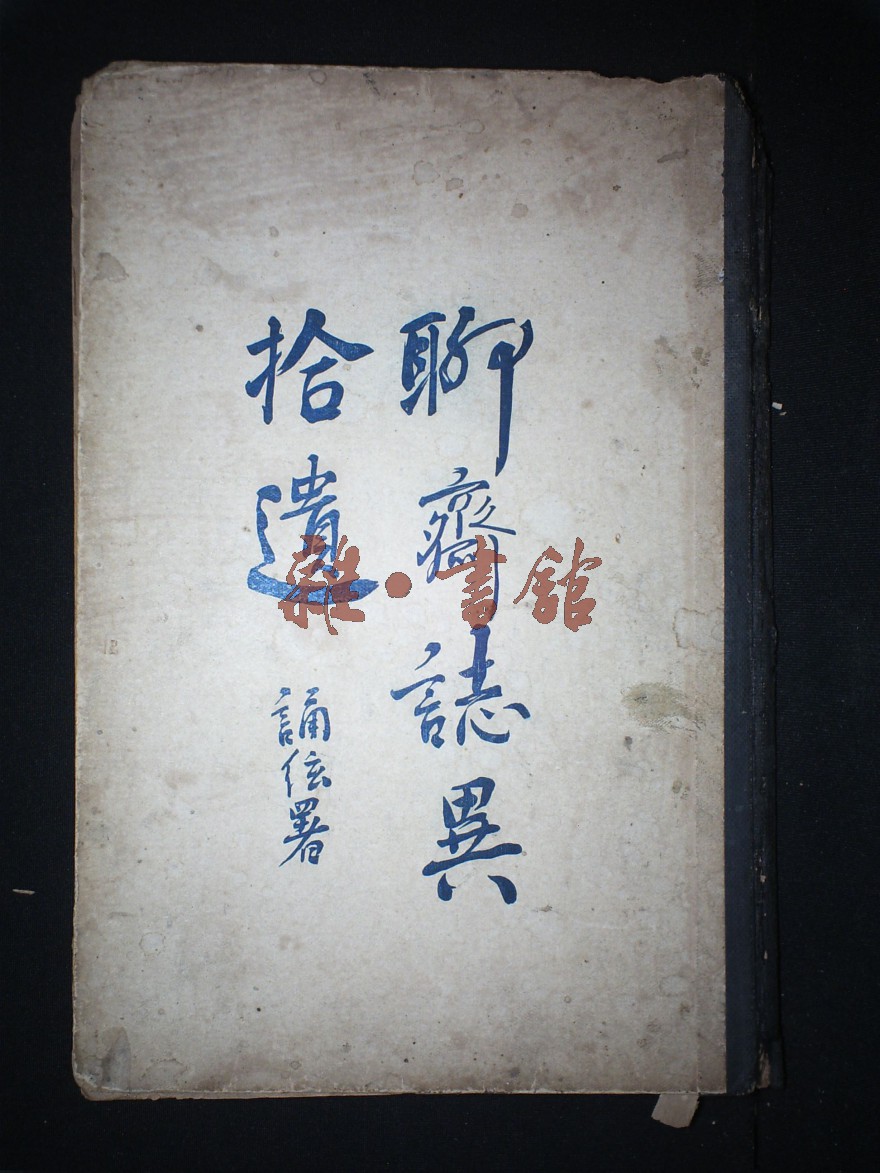 聊齋誌異
拾遺
誦弦署
雜·書館